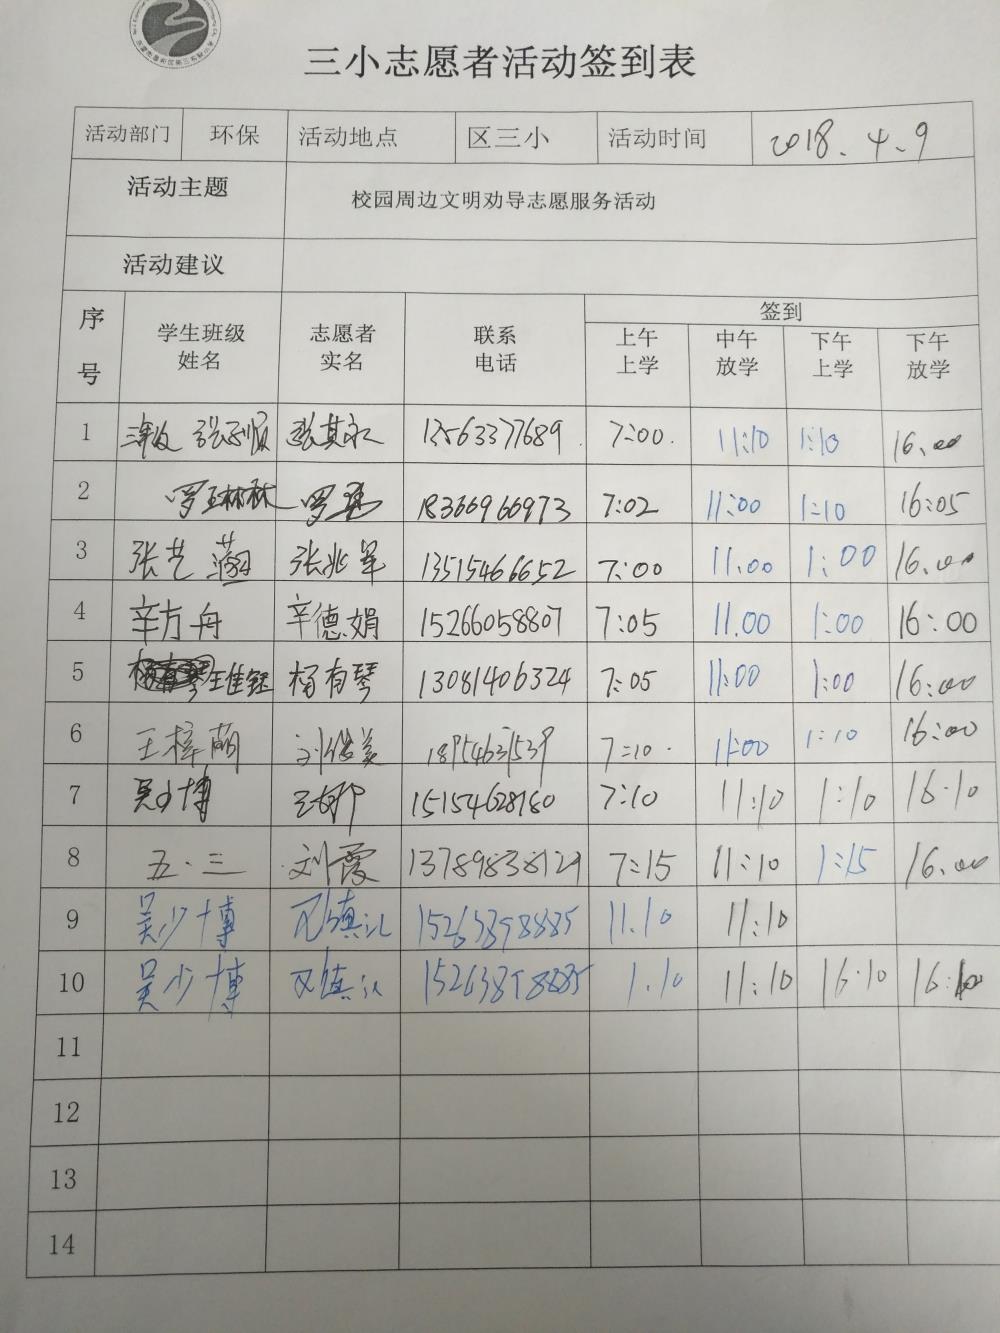 三小志愿者活动签到表
活动部门 环保 活动地点 区三小 活动时间 2018.4.9
活动主题 校园周边文明劝导志愿服务活动
活动建议
序号 学生班级姓名 志愿者实名 联系电话 签到
上午上学 中午放学 下午上学 下午放学
1 张其永 13563377689 7:00. 11:10 1:10 16.00
2 罗玉林秋 罗 18366966973 7:02 11:00 1:10 16:05
3 张艺 张兆军 13515466652 7:00 11.00 1:00 16.00
4 辛方舟 辛德娟 15266058807 7:05 11.00 1:00 16:00
5 王佳钰 杨有琴 13081406324 7:05 11:00 1:00 16:00
6 王梓萌 刘俊美 18954631539 7:10. 11:00 1:10 16:00
7 吴少博 15154628160 7:10 11:10 1:10 16.10
8 五.三 刘霞 13789838129 7:15 11:10 1:15 16.00
9 吴少博 15263898885 11.10 11:10
10 吴少博 15263898885 1.10 11:10 16.10 16:10
11
12
13
14